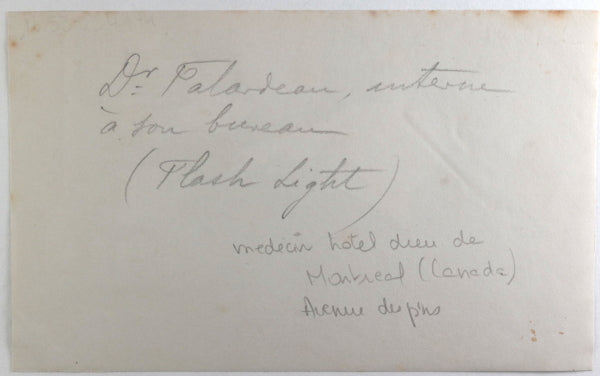 Dr. Palardeau, interne
à son bureau
(Flash Light)
medecin hôtel dieu de
Montreal (Canada)
Avenue des pins